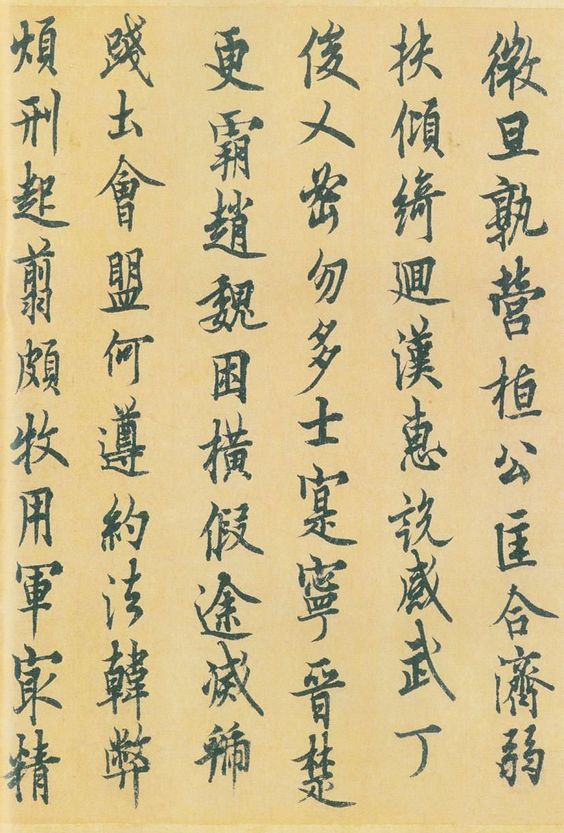 微旦孰營桓公匡合濟弱
扶傾綺迴漢惠說感武丁
俊乂密勿多士寔寧晉楚
更霸趙魏困橫假途滅虢
踐土會盟何遵約法韓弊
煩刑起翦頗牧用軍宣精